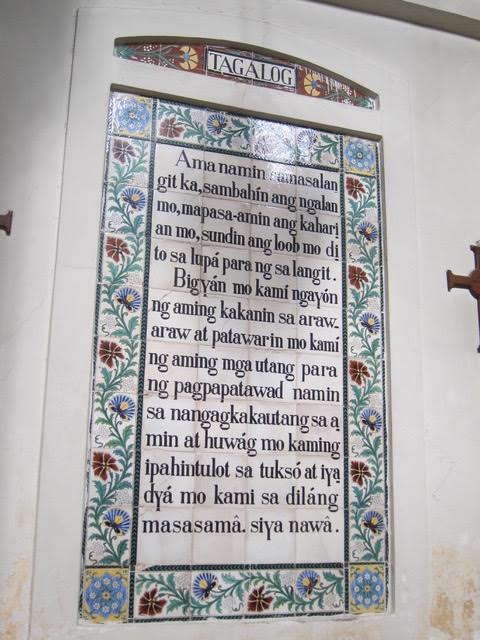 TAGALOG
Ama namin sumasalan
git ka, sambahín ang ngalan
mo, mapasa-amin ang kahari
an mo, sundin ang loob mo di
to sa lupá para ng sa langit.
Bigyán mo kamí ngayón
ng aming kakanin sa araw-
araw at patawarin mo kamí
ng aming mga utang para
ng pagpapatawad namin
sa nangagkakautang sa a
min at huwág mo kaming
ipahintulot sa tuksó at iya
dyá mo kami sa diláng
masasamâ. siya nawâ.